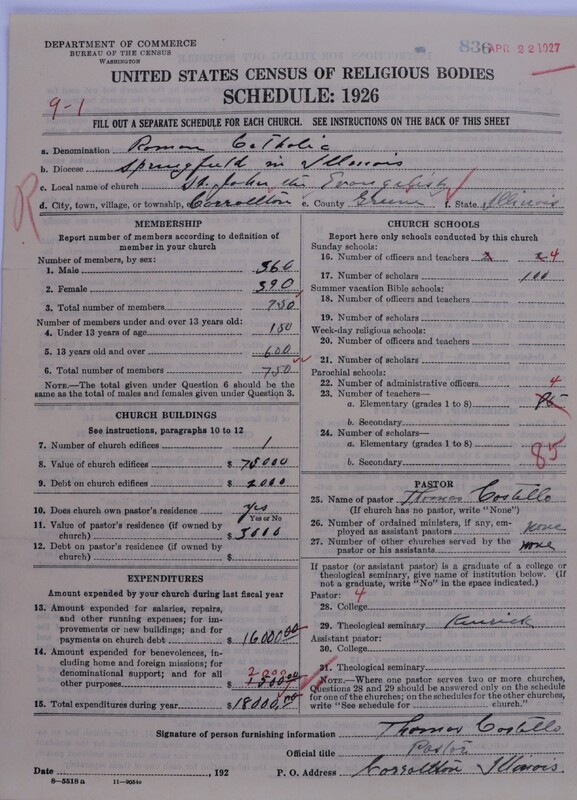 DEPARTMENT OF COMMERCE
BUREAU OF THE CENSUS
WASHINGTON
836 APR 22 1927
UNITED STATES CENSUS OF RELIGIOUS BODIES
SCHEDULE: 1926
9-1
FILL OUT A SEPARATE SCHEDULE FOR EACH CHURCH. SEE INSTRUCTIONS ON THE BACK OF THIS SHEET
a. Denomination Roman Catholic
b. Diocese Springfield in Illinois
c. Local name of church St. John the Evangelist
d. City, town, village, or township, Carrollton e. County Greene f. State Illinois
R
MEMBERSHIP
Report number of members according to definition of
member in your church
Number of members, by sex:
1. Male 360
2. Female 390
3. Total number of members 750
Number of members under and over 13 years old:
4. Under 13 years of age 150
5. 13 years old and over 600
6. Total number of members 750
NOTE.—The total given under Question 6 should be
same as the total of males and females given under Question 3.
CHURCH BUILDINGS
See instructions, paragraphs 10 to 12
7. Number of church edifices 1
8. Value of church edifices $ 75000
9. Debt on church edifices $ 2000
10. Does church own pastor's residence yes
Yes or No
11. Value of pastor's residence (if owned by
church) $ 5000
12. Debt on pastor's residence (if owned by
church) $
EXPENDITURES
Amount expended by your church during last fiscal year
13. Amount expended for salaries, repairs,
and other running expenses; for im-
provements or new buildings; and for
payments on church debt $ 16000.00
14. Amount expended for benevolences,
including home and foreign missions; for
denominational support; and for all
other purposes $ 2000
15. Total expenditures during year $ 18000.00
CHURCH SCHOOLS
Report here only schools conducted by this church
Sunday schools:
16. Number of officers and teachers 4
17. Number of scholars 100
Summer vacation Bible schools:
18. Number of officers and teachers
19. Number of scholars
Week-day religious schools:
20. Number of officers and teachers
21. Number of scholars
Parochial schools:
22. Number of administrative officers 4
23. Number of teachers—
a. Elementary (grades 1 to 8) 85
b. Secondary
24. Number of scholars—
a. Elementary (grades 1 to 8) 85
b. Secondary
PASTOR
25. Name of pastor Thomas Costello
(If church has no pastor, write "None")
26. Number of ordained ministers, if any, em-
ployed as assistant pastors none
27. Number of other churches served by the
pastor or his assistants none
If pastor (or assistant pastor) is a graduate of a college or
theological seminary, give name of institution below. (If
not a graduate, write "No" in the space indicated.)
Pastor: 4
28. College
29. Theological seminary Kenrick
Assistant pastor:
30. College
31. Theological seminary
NOTE.—Where one pastor serves two or more churches,
Questions 28 and 29 should be answered only on the schedule
for one of the churches; on the schedules for the other churches,
write "See schedule for church."
Signature of person furnishing information Thomas Costello
Official title Pastor
Date , 192 P. O. Address Carrollton Illinois
8-5518a 11-9054a